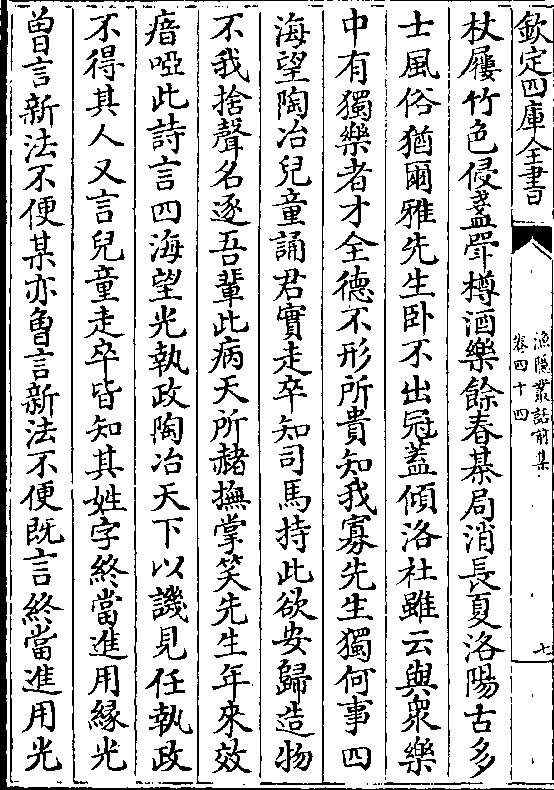 欽定四庫全書
漁隱叢話前集
卷四十四
七
杖屨竹色侵盞斝樽酒樂餘春棊局消長夏洛陽古多
士風俗猶爾雅先生卧不出冠蓋傾洛社雖云與衆樂
中有獨樂者才全德不形所貴知我寡先生獨何事四
海望陶冶兒童誦君實走卒知司馬持此欲安歸造物
不我捨聲名逐吾輩此病天所赭撫掌笑先生年來效
瘖啞此詩言四海望光執政陶冶天下以譏見任執政
不得其人又言兒童走卒皆知其姓字終當進用緣光
曽言新法不便某亦魯言新法不便既言終當進用光